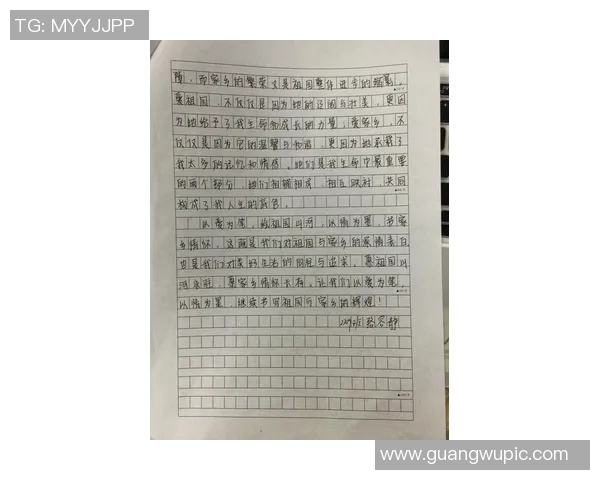 TG: MYYJJPP
障，而家乡的繁荣又是祖国整体进步的缩影。
爱祖国，不仅仅是因为她的辽阔与壮美，更因
为她给予了我生命和成长的力量；爱家乡，不
仅仅是因为它的温馨与和谐，更因为她承载了
我太多的记忆和情感。她们是我生命中最重要
的两个部分，她们相辅相成，相互映衬，共同
构成了我人生的底色。
以爱为笔，绘祖国山河，以情为墨，书家
乡情怀。这两是我们对祖国与家乡的深情表白
也是我们对美好生活的向往与追求。愿祖国山
河永驻，爱家乡情怀长存，让我们以爱为笔，
以情为墨，继续书写祖国与家乡的辉煌！
www.guangwupic.com